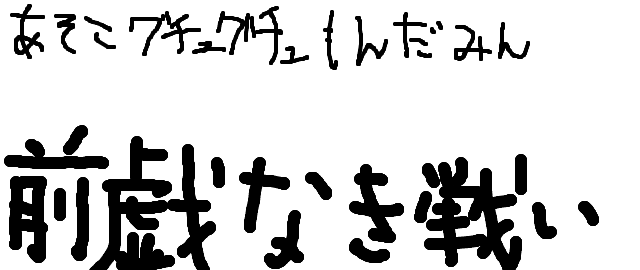 あそこグチュグチュもんだみん
前戯なき戦い